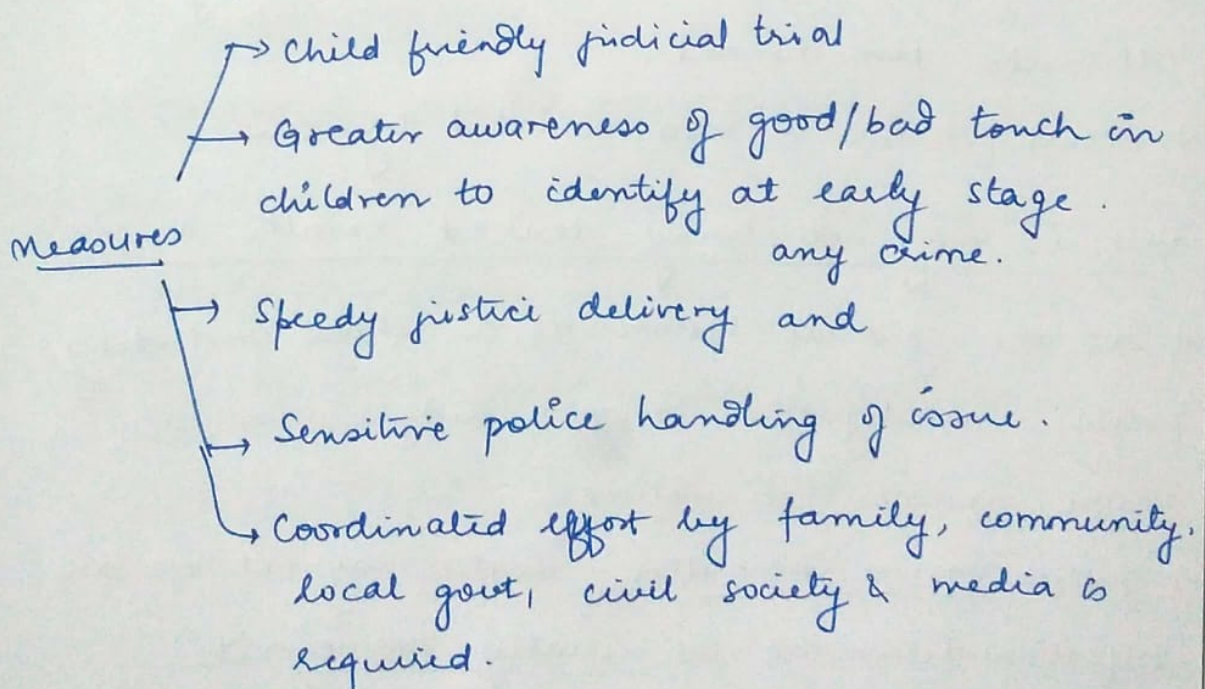 Child friendly judicial trial
Greater awareness of good/bad touch in
children to identify at early stage.
any crime.
Measures
Speedy justice delivery and
Sensitive police handling of issue.
Coordinated effort by family, community,
local govt, civil society & media is
required.